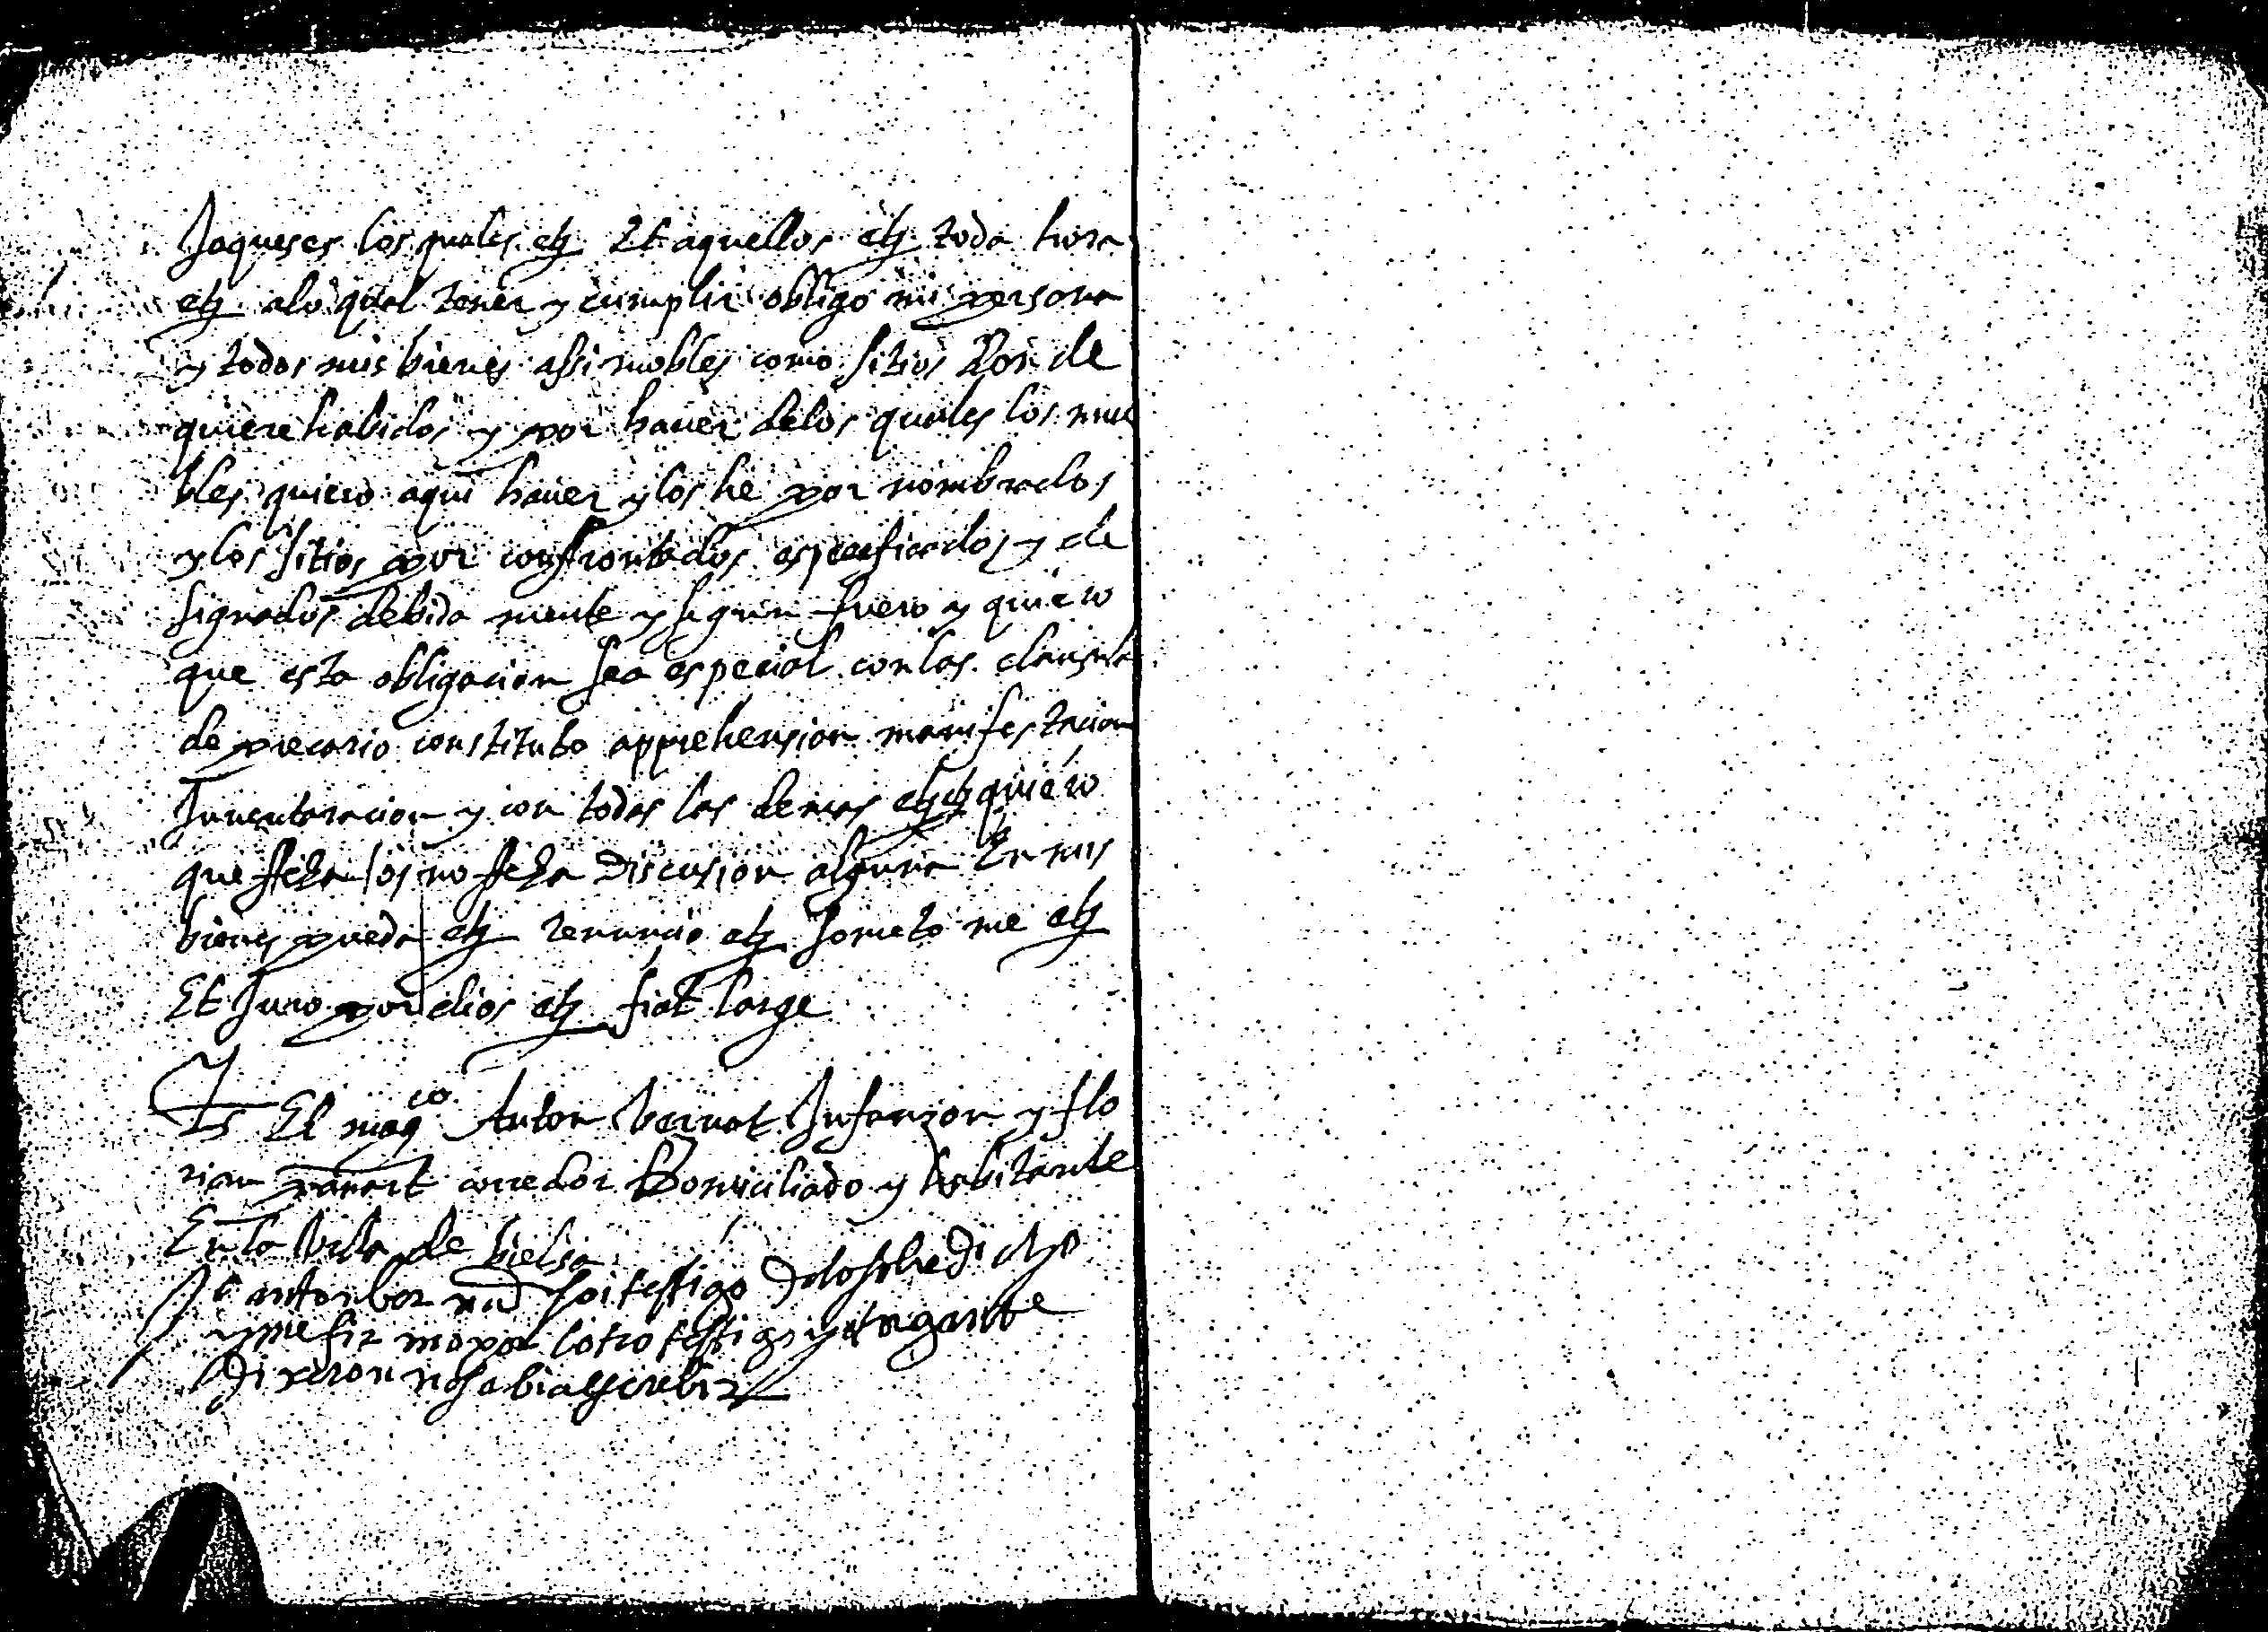 Jaqueses los quales etz Et aquellos etz toda hora
etz alo qual tener y cumplir obligo mi persona
y todos mis bienes assi mobles como sitios Don de
quiere habidos y por hauer delos quales los mue
bles quiero aqui hauer y los he por nombrados
y los sitios por confrontados especificados y de
signados debida mente y segun fuero y quiero
que esta obligacion sea especial con las clausulas
de precario constituto apprehension manifestacion
Inuentaracion y con todas las demas etz etz quiero
que fecha o no fecha Discusion alguna En mis
bienes pueda etz renuncio etz someto me etz
Et Juro por dios etz fiat large
Ts El magco Anton Vernat Infanzon y flo
rian corredor Domiciliado y habitante
En la Villa de bielsa
Yo anton ber nad soi testigo dlo sobre Dicho
y me firmo por lotro testigo y otorgante
Dixeron no sabia escrebir